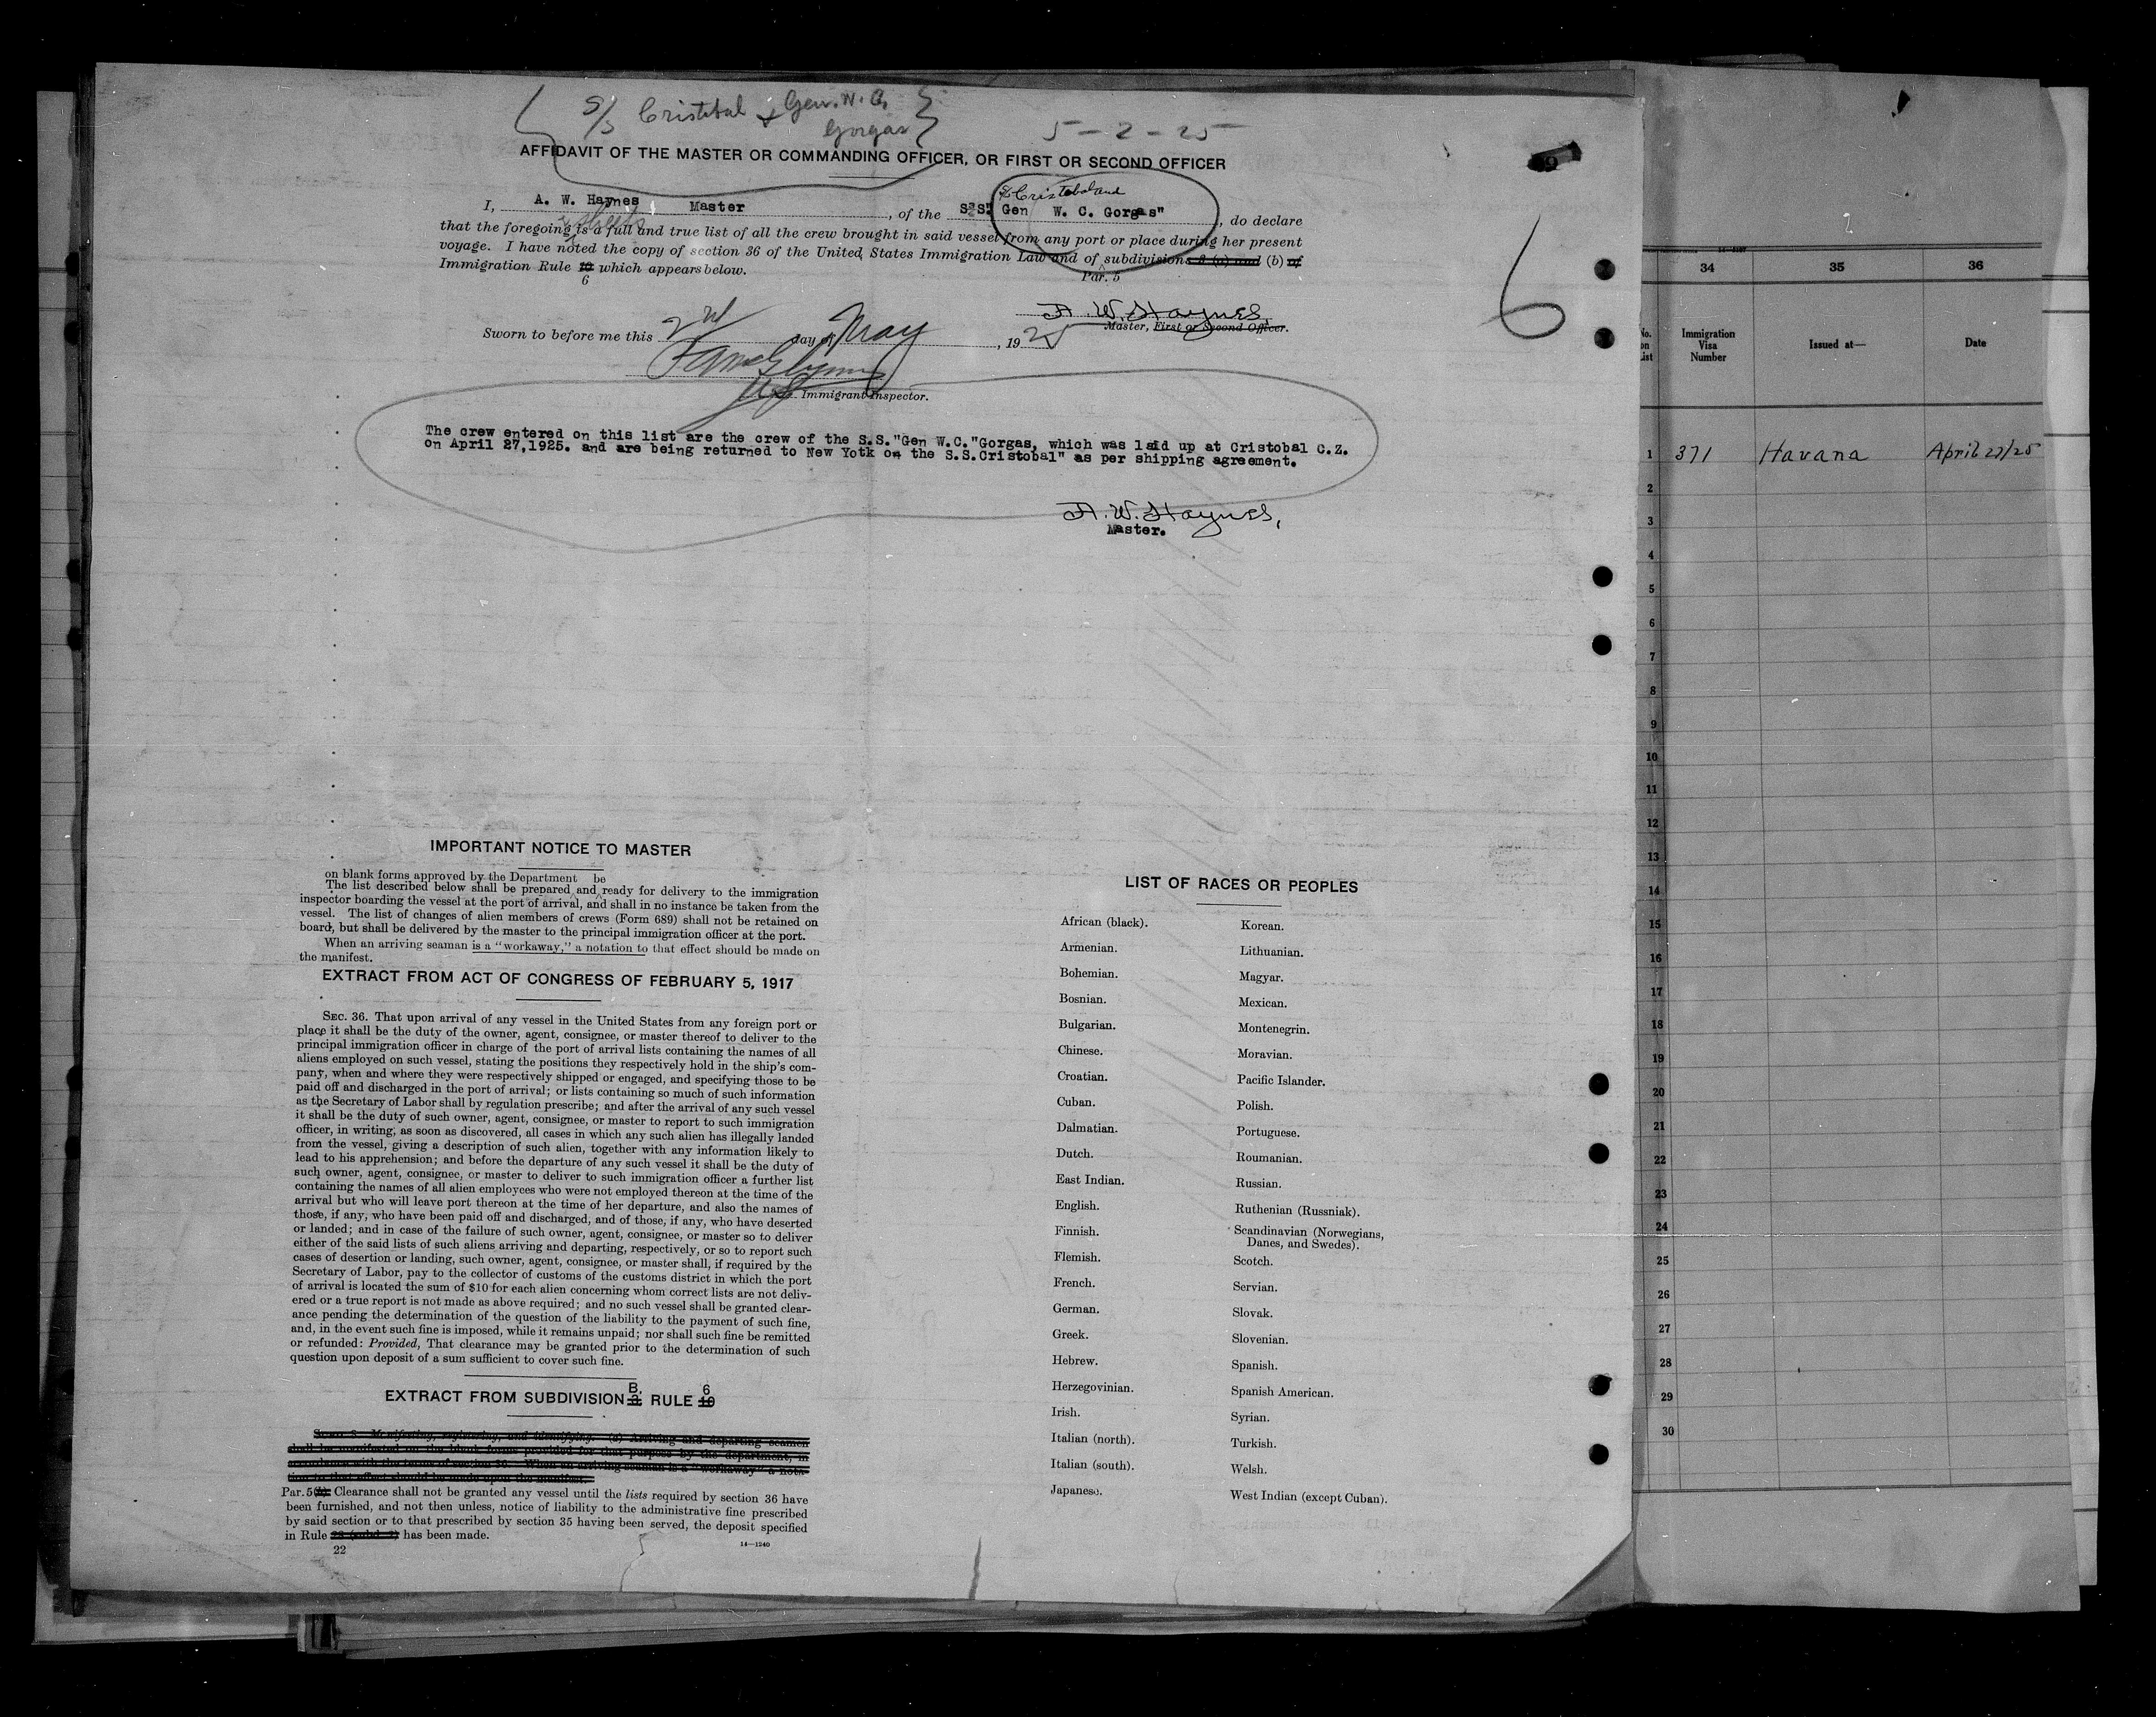 S/S Cristobal & Gen. W. C.
Gorgas
5-2-25
AFFIDAVIT OF THE MASTER OR COMMANDING OFFICER, OR FIRST OR SECOND OFFICER
S/S Cristobal and
I, A. W. Haynes, Master, of the S.S. "Gen W. C. Gorgas", do declare
sheets
that the foregoing is a full and true list of all the crew brought in said vessel from any port or place during her present
voyage. I have noted the copy of section 36 of the United States Immigration Law and of subdivisions 3 (a) and (b) of
Immigration Rule 10 which appears below.
6
Par. 5
6
A. W. Haynes,
Master, First or Second Officer.
Sworn to before me this 2nd day of May, 1925
U.S. Immigrant Inspector.
The crew entered on this list are the crew of the S.S."Gen W.C."Gorgas, which was laid up at Cristobal C.Z.
on April 27,1925. and are being returned to New Yotk on the S.S.Cristobal" as per shipping agreement.
A. W. Haynes,
Master.
IMPORTANT NOTICE TO MASTER
on blank forms approved by the Department be
The list described below shall be prepared and ready for delivery to the immigration
inspector boarding the vessel at the port of arrival, and shall in no instance be taken from the
vessel. The list of changes of alien members of crews (Form 689) shall not be retained on
board, but shall be delivered by the master to the principal immigration officer at the port.
When an arriving seaman is a "workaway," a notation to that effect should be made on
the manifest.
EXTRACT FROM ACT OF CONGRESS OF FEBRUARY 5, 1917
SEC. 36. That upon arrival of any vessel in the United States from any foreign port or
place it shall be the duty of the owner, agent, consignee, or master thereof to deliver to the
principal immigration officer in charge of the port of arrival lists containing the names of all
aliens employed on such vessel, stating the positions they respectively hold in the ship's com-
pany, when and where they were respectively shipped or engaged, and specifying those to be
paid off and discharged in the port of arrival; or lists containing so much of such information
as the Secretary of Labor shall by regulation prescribe; and after the arrival of any such vessel
it shall be the duty of such owner, agent, consignee, or master to report to such immigration
officer, in writing, as soon as discovered, all cases in which any such alien has illegally landed
from the vessel, giving a description of such alien, together with any information likely to
lead to his apprehension; and before the departure of any such vessel it shall be the duty of
such owner, agent, consignee, or master to deliver to such immigration officer a further list
containing the names of all alien employees who were not employed thereon at the time of the
arrival but who will leave port thereon at the time of her departure, and also the names of
those, if any, who have been paid off and discharged, and of those, if any, who have deserted
or landed; and in case of the failure of such owner, agent, consignee, or master so to deliver
either of the said lists of such aliens arriving and departing, respectively, or so to report such
cases of desertion or landing, such owner, agent, consignee, or master shall, if required by the
Secretary of Labor, pay to the collector of customs of the customs district in which the port
of arrival is located the sum of $10 for each alien concerning whom correct lists are not deliv-
ered or a true report is not made as above required; and no such vessel shall be granted clear-
ance pending the determination of the question of the liability to the payment of such fine,
and, in the event such fine is imposed, while it remains unpaid; nor shall such fine be remitted
or refunded: Provided, That clearance may be granted prior to the determination of such
question upon deposit of a sum sufficient to cover such fine.
B. 6
EXTRACT FROM SUBDIVISION 3, RULE 10
SUBD. 3. Manifesting, registering, and identifying. (a) Arriving and departing seamen
shall be manifested on the blank forms provided for that purpose by the department, in
accordance with the terms of section 36. When an arriving seaman is a "workaway" a nota-
tion to that effect should be made upon the manifest.
Par. 5 (b) Clearance shall not be granted any vessel until the lists required by section 36 have
been furnished, and not then unless, notice of liability to the administrative fine prescribed
by said section or to that prescribed by section 35 having been served, the deposit specified
in Rule 28 (subd. 2) has been made.
22
14—1240
LIST OF RACES OR PEOPLES
African (black).
Armenian.
Bohemian.
Bosnian.
Bulgarian.
Chinese.
Croatian.
Cuban.
Dalmatian.
Dutch.
East Indian.
English.
Finnish.
Flemish.
French.
German.
Greek.
Hebrew.
Herzegovinian.
Irish.
Italian (north).
Italian (south).
Japanese.
Korean.
Lithuanian.
Magyar.
Mexican.
Montenegrin.
Moravian.
Pacific Islander.
Polish.
Portuguese.
Roumanian.
Russian.
Ruthenian (Russniak).
Scandinavian (Norwegians,
Danes, and Swedes).
Scotch.
Servian.
Slovak.
Slovenian.
Spanish.
Spanish American.
Syrian.
Turkish.
Welsh.
West Indian (except Cuban).
34 35 36
No. on List
Immigration Visa Number
Issued at—
Date
1 371 Havana April 27/25
2
3
4
5
6
7
8
9
10
11
12
13
14
15
16
17
18
19
20
21
22
23
24
25
26
27
28
29
30